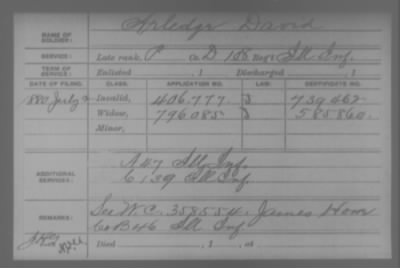 NAME OF SOLDIER: Arledge David
SERVICE: Late rank, P Co. D 106 Reg't Ill Inf.
TERM OF SERVICE: Enlisted , 1 Discharged , 1
DATE OF FILING. CLASS. APPLICATION NO. LAW. CERTIFICATE NO.
1880 July 2 Invalid, 406.777 739.462
Widow, 796085 585860
Minor,
ADDITIONAL SERVICES: A 47 Ill Inf.
C 139 Ill Inf.
REMARKS: See W.C. 358554 James
Co B 46 Ill Inf
Died , 1 , at